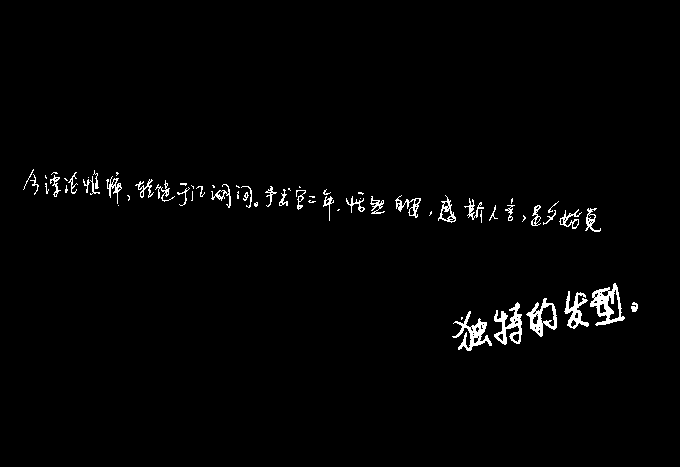 今漂沦憔悴，转徙于江湖间。予出官二年，恬然自安，感斯人言，是夕始觉
独特的发型。